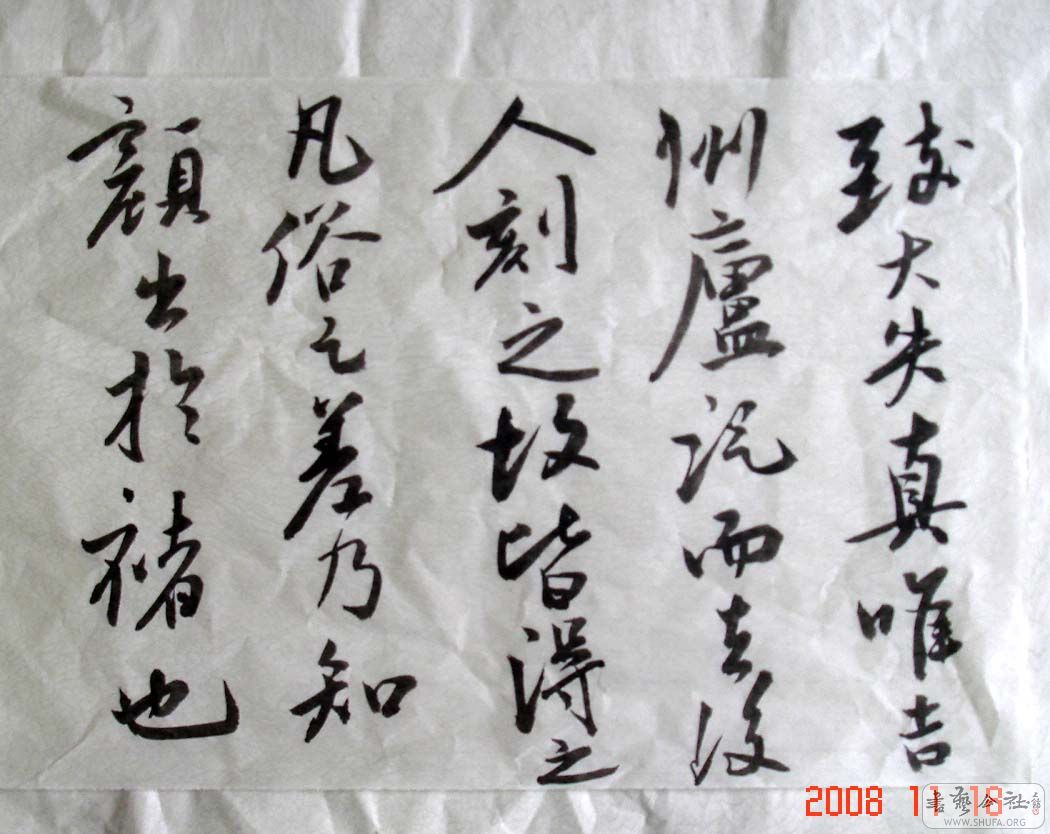 致大失真唯吉
州廬山題而去後
人刻之故皆得之
凡俗之差乃知
顏出於褚也
2008 11 18
書藝公社
WWW.SHUFA.ORG